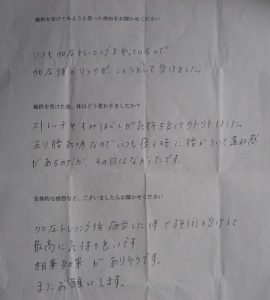 施術を受けてみようと思った理由をお聞かせください
いつも加圧トレーニングをやっているので
加圧後のリラクゼーションとして受けました。
施術を受けた後、体はどう変わりましたか?
ストレッチやもみほぐしが気持ち良くてウトウトしました。
反り腰気味なのでいつも寝る時に腰がういて違和感
があるのだが その日はなかったです。
全体的な感想など、ございましたらお聞かせください
加圧トレーニング後 疲労した体で施術を受けると
最高に気持ち良いです
相乗効果がありそうです。
またお願いします。